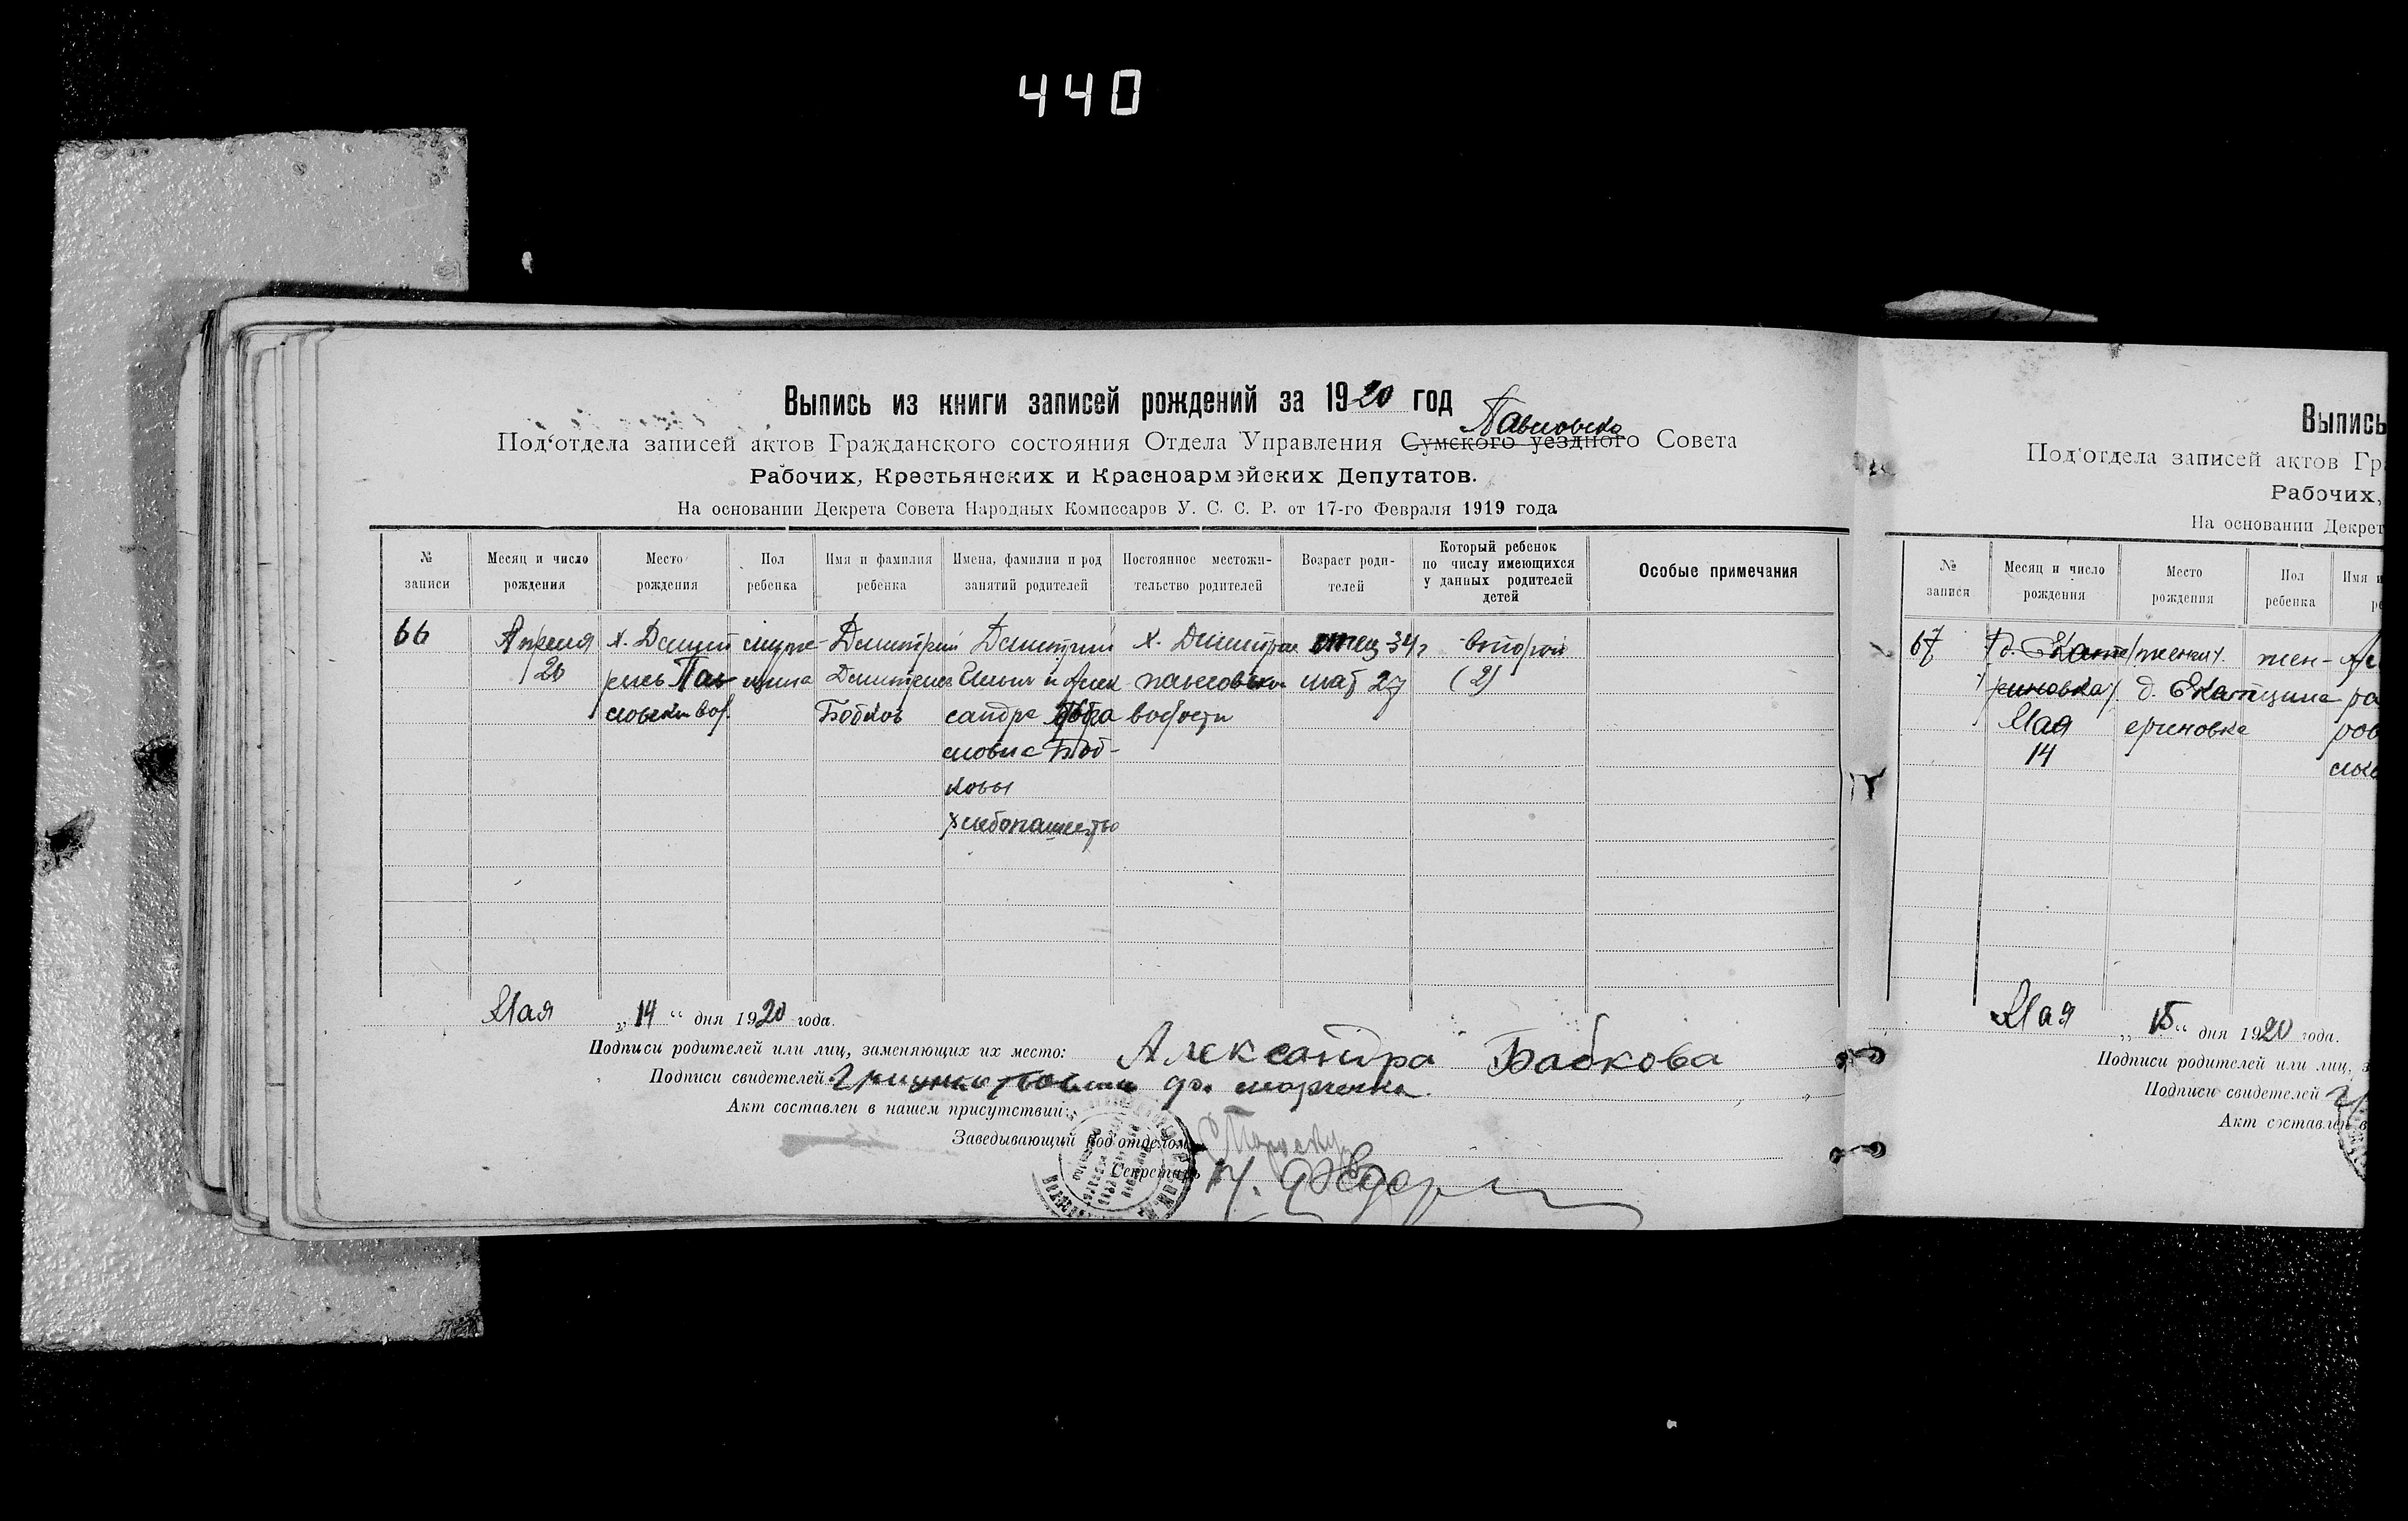 440
Выпись из книги записей рождений за 1920 год
Павловско
Под‘отдела записей актов Гражданского состояния Отдела Управления Сумского уездного Совета
Рабочих, Крестьянских и Красноармэйских Депутатов.
На основании Декрета Совета Народных Комиссаров У. С. С. Р. от 17-го Февраля 1919 года
№ записи
Месяц и число рождения
Место рождения
Пол ребенка
Имя и фамилия ребенка
Имена, фамилии и род занятий родителей
Постоянное местожи-
тельство родителей
Возраст роди-
телей
Который ребенок
по числу имеющихся
у данных родителей
детей
Особые примечания
66
Апреля
20
х.
Пав
вол.
мужс-
щина
Димитрий
Бобков
Димитрий
Ильин и Алек
сандра
Боб-
ковы
хлебопашество
х.
волости
отец 34
мат 27
второй
(2)
Мая „14“ дня 1920 года.
Подписи родителей или лиц, заменяющих их место: Александра Бабкова
Подписи свидетелей
Акт составлен в нашем присутствии:
Заведывающий под‘отделом
Секретарь
Выпись
Под‘отдела записей актов Гр
Рабочих,
На основании Декрет
№ записи
Месяц и число рождения
Место рождения
Пол ребенка
Имя и
67
д. Екате
риновка
Мая
14
женск
д. Екат
ериновка
жен-
щина
ра
ров
Мая „15“ дня 1920 года.
Подписи родителей или лиц, з
Подписи свидетелей
Акт составлен в